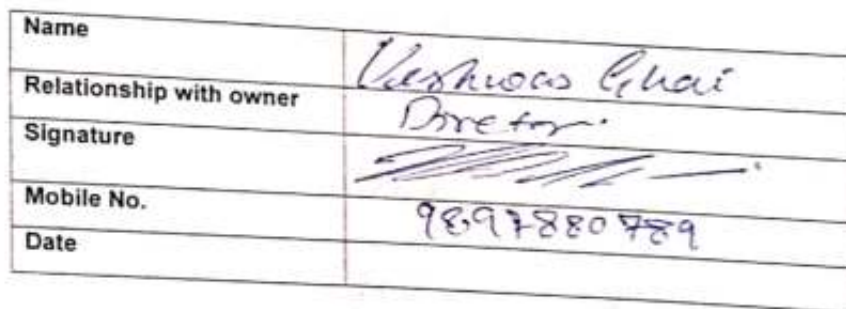 Name Vashwas Ghai
Relationship with owner Director.
Signature
Mobile No. 9897880789
Date